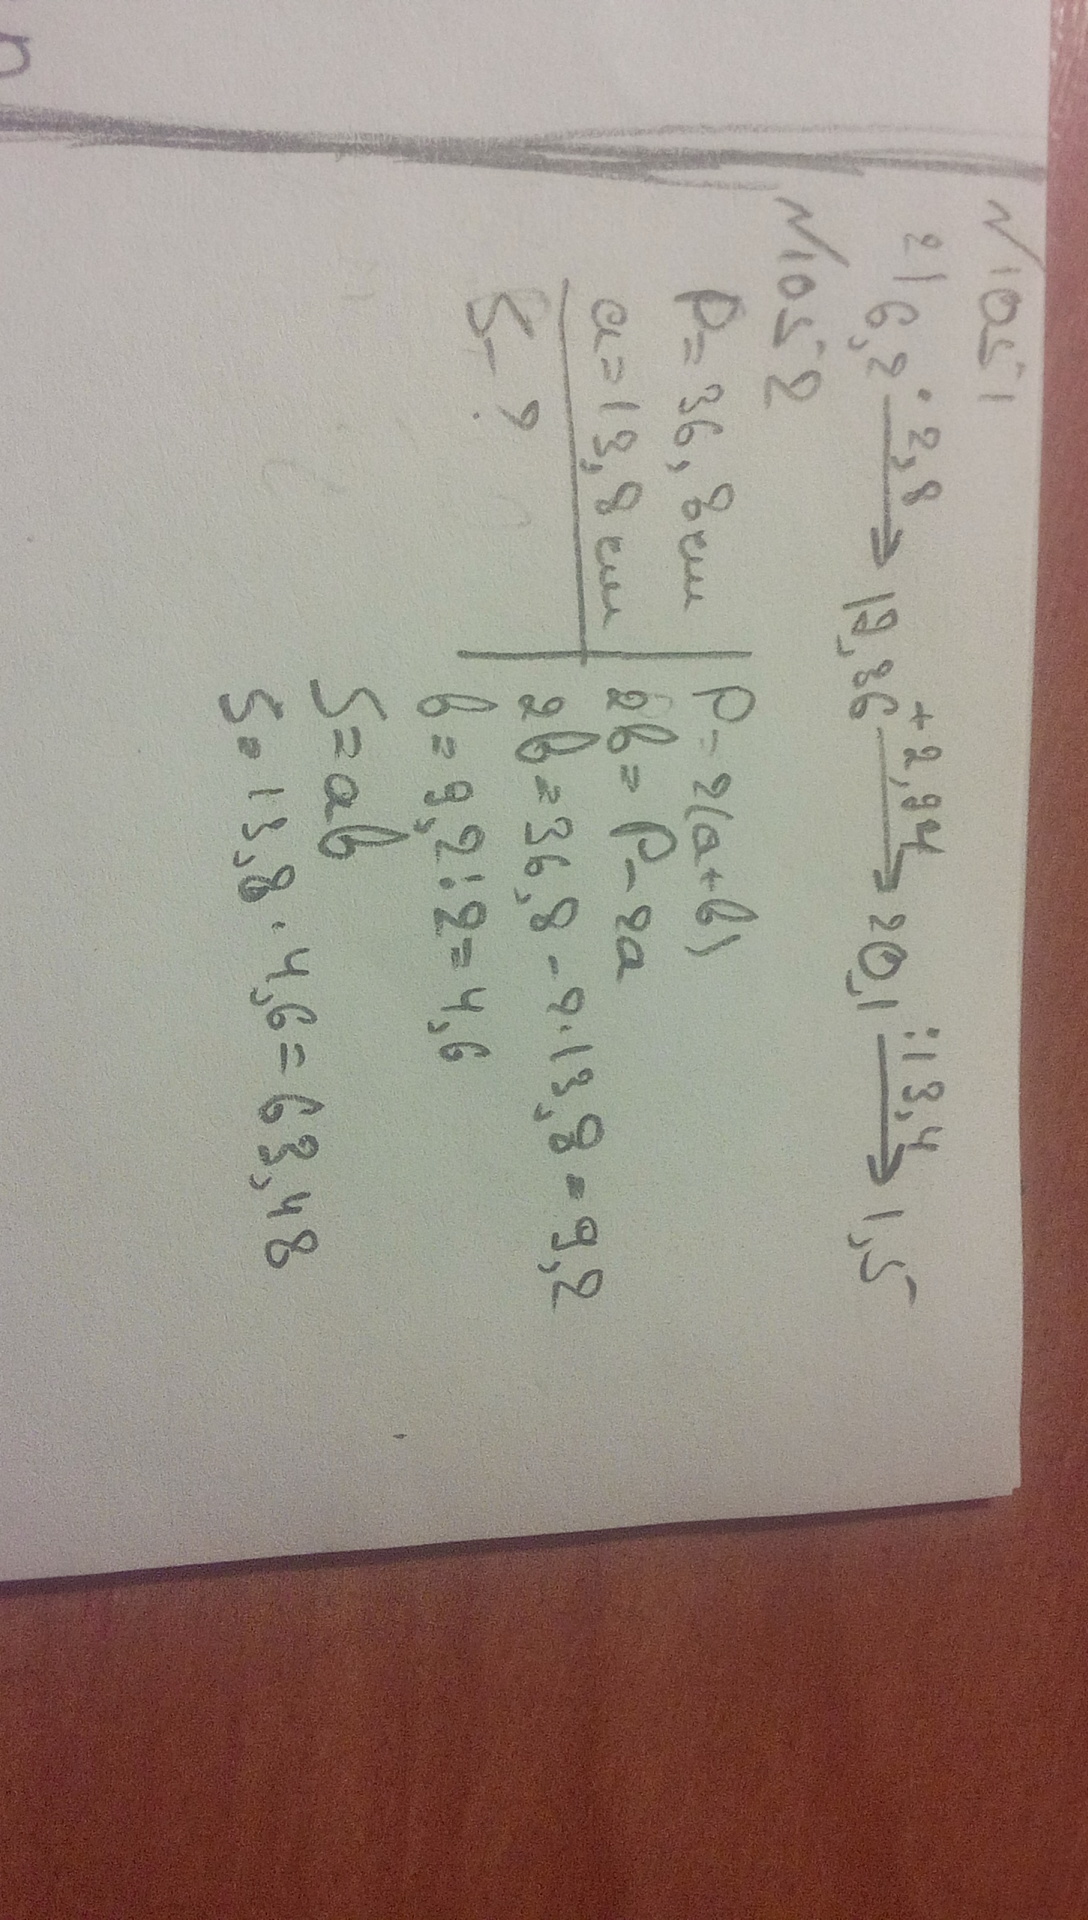 N1051
2) 6,2 ·2,8→ 17,36 +2,74→ 20,1 :13,4→ 1,5
N1052
P=36,8 см
a=13,8 см
S-?
P=2(a+b)
2b=P-2a
2b=36,8-2·13,8=9,2
b=9,2:2=4,6
S=ab
S=13,8·4,6=63,48